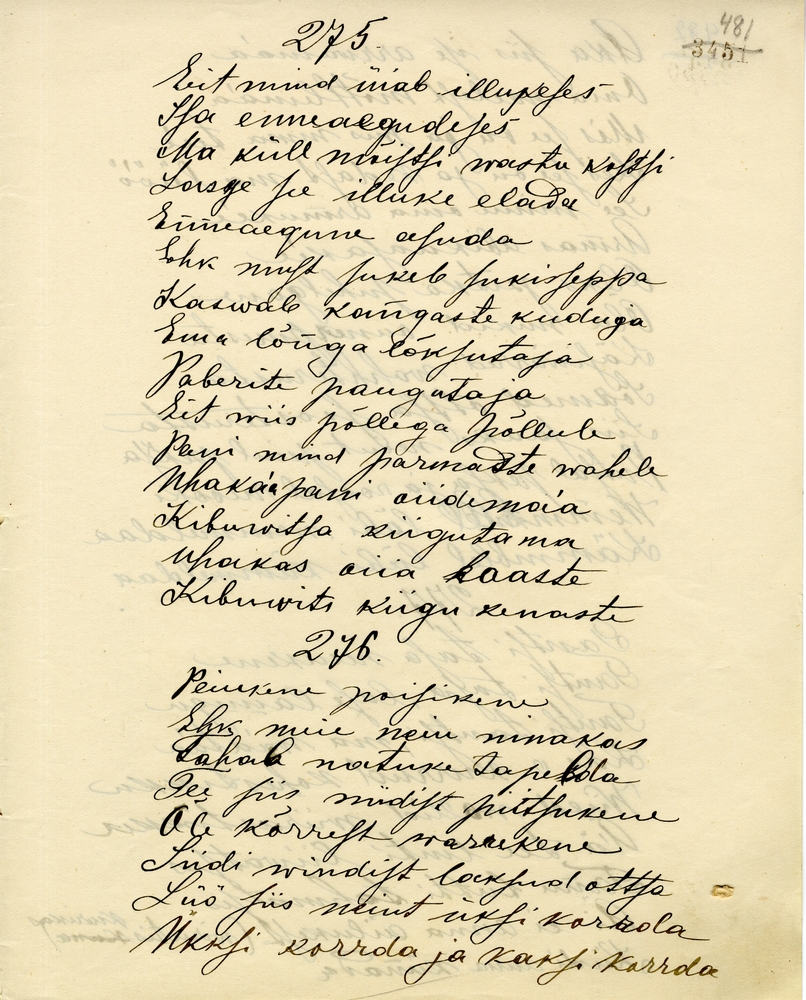 481
3451
275.
Eit mind üiab illukeses
Isa enneaegudeses
Ma küll mõistsi wasta kostsi
Lasge se illuke elada
Enneaegune asuda
Ehk must sukeb sukisseppa
Kaswab kangaste kuduja
Ema lõnga lõksutaja
Paberite paugutaja
Eit wiis põllega põllule
Pani mind parmaste wahele
Uhakaa pani äiidemää
Kibuwitsa kiigutama
Uhakas äiia haaste
Kibuwits kiigu kenaste
276.
Peiukene poisikene
Ehk meie neiu ninakas
Tahab natuke tapelda
Tee siis niidist piitsukene
Õle kõrrest warrekene
Siidi windist laksud ottsa
Löö siis neiut üksi korrda
Ükksi korrda ja kaksi korrda